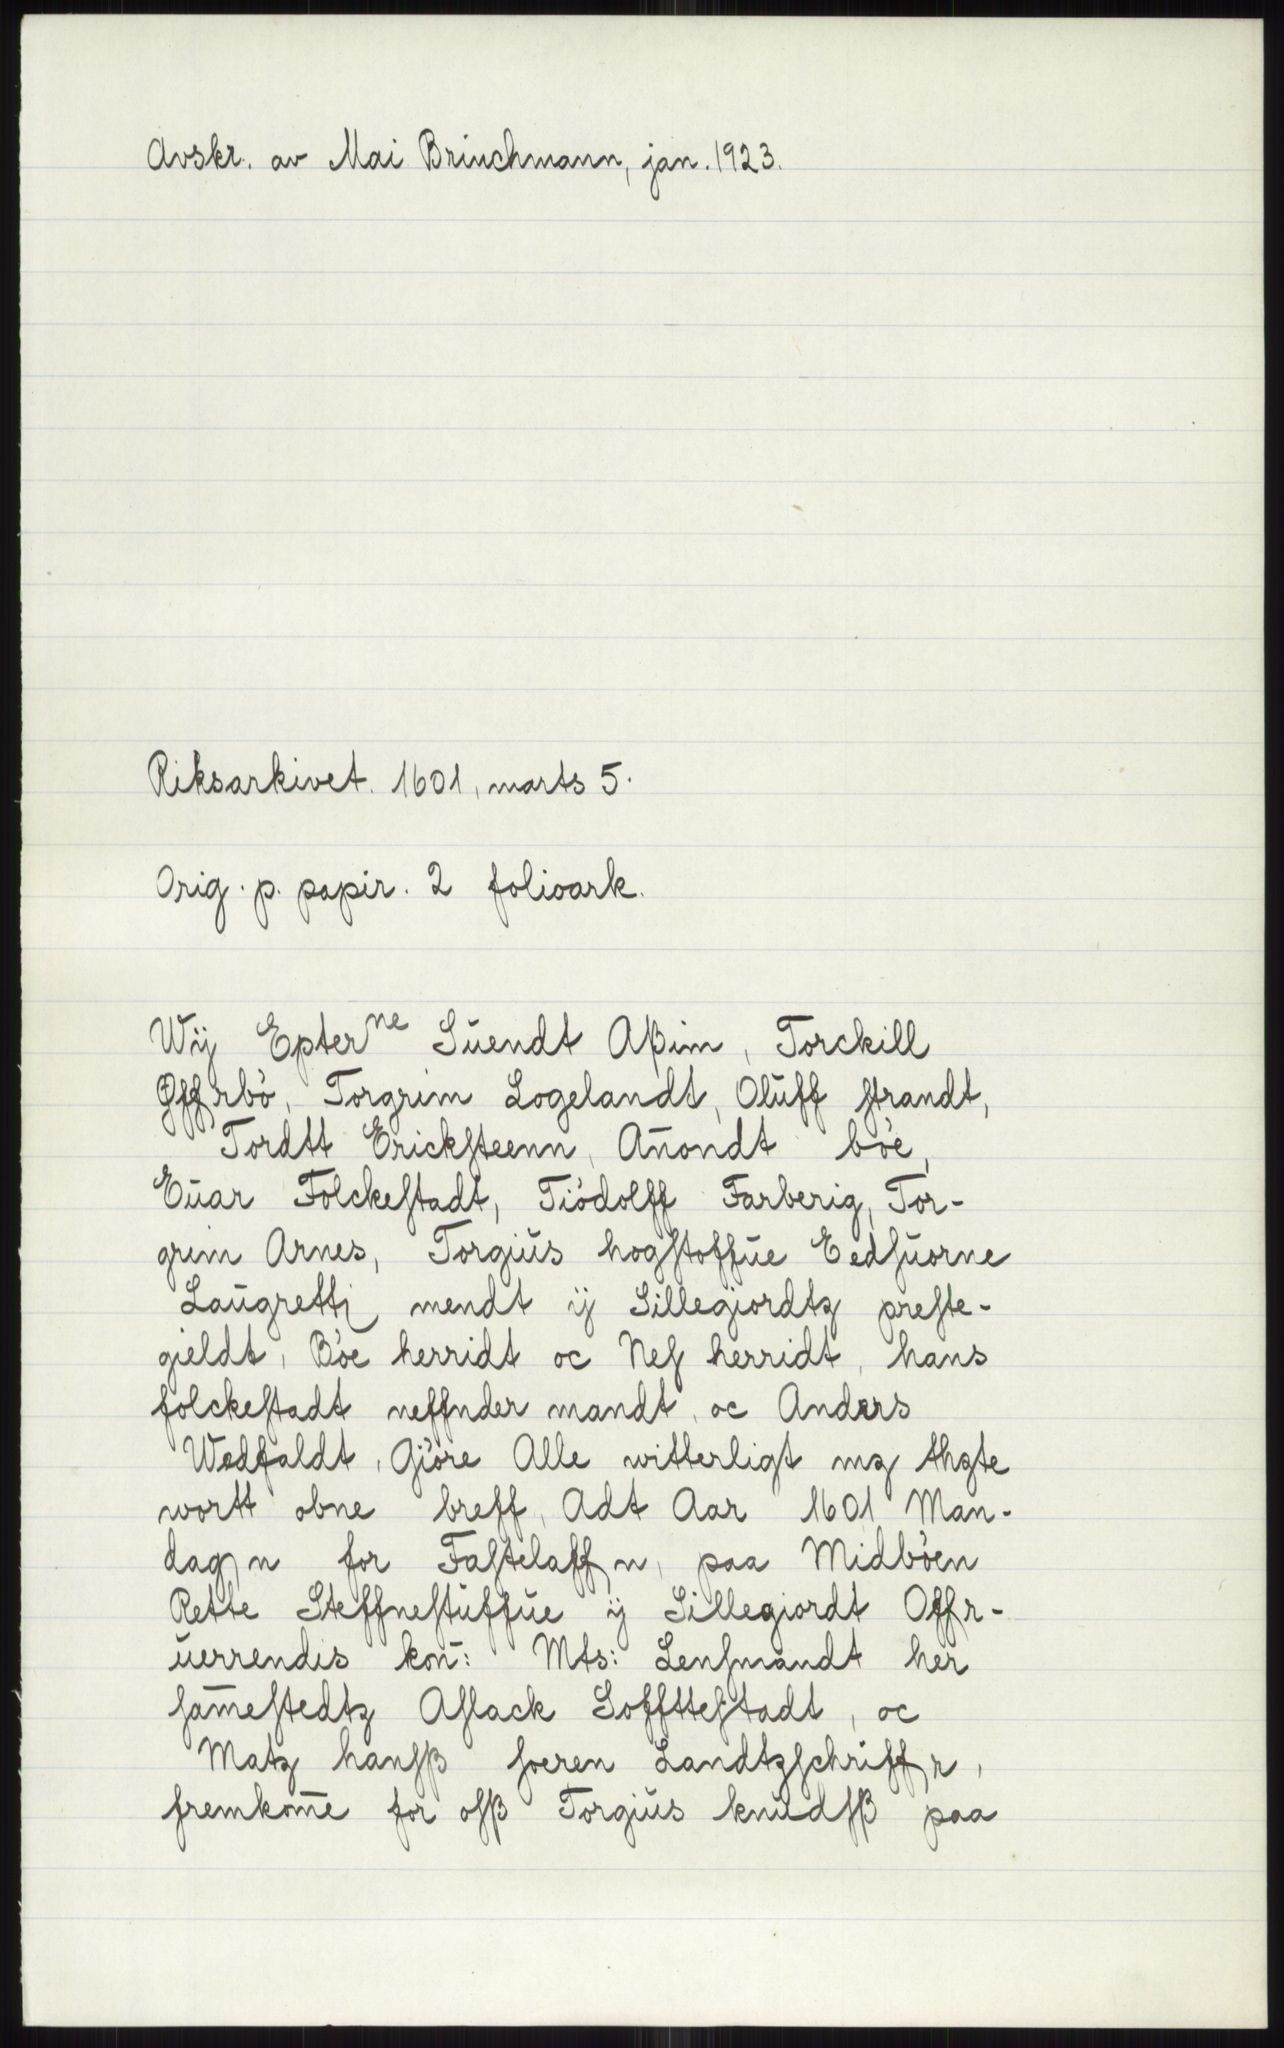 Avskr. av Mai Brinchmann, jan. 1923.
Riksarkivet. 1601, marts 5.
Orig. p. papir. 2 folioark.
Wÿ Epter ne Suendt Aßim, Torckill
Torgrim Logelandt, Oluff strandt,
Tordtt Ericksteenn, An̄ondt böe,
Euar Folckestadt, Tiödolff Farberig, Tor-
grim Arnes, Torgius hogstoffue Eedsuorne
Laugrettz mendt ÿ Sillegiordtz preste-
gieldt, Böe herridt oc Nes herridt, hans
folckestadt neffnder mandt, oc Anders
Wedfaldt, Giöre Alle witterligt mz thzte
wortt obne breff, Adt Aar 1601 Man-
dagn for Fastelaffn, paa Midböen
Rette Steffnestuffue ÿ Sillegiordt Offr-
uerrendis kon̄: Mts: Lensmandt her
sam̄estedtz Aslack Lofftestadt, oc
Matz hansß soeren Landtzschriffr,
fremkom̄e for osß Torgius knudsß paa